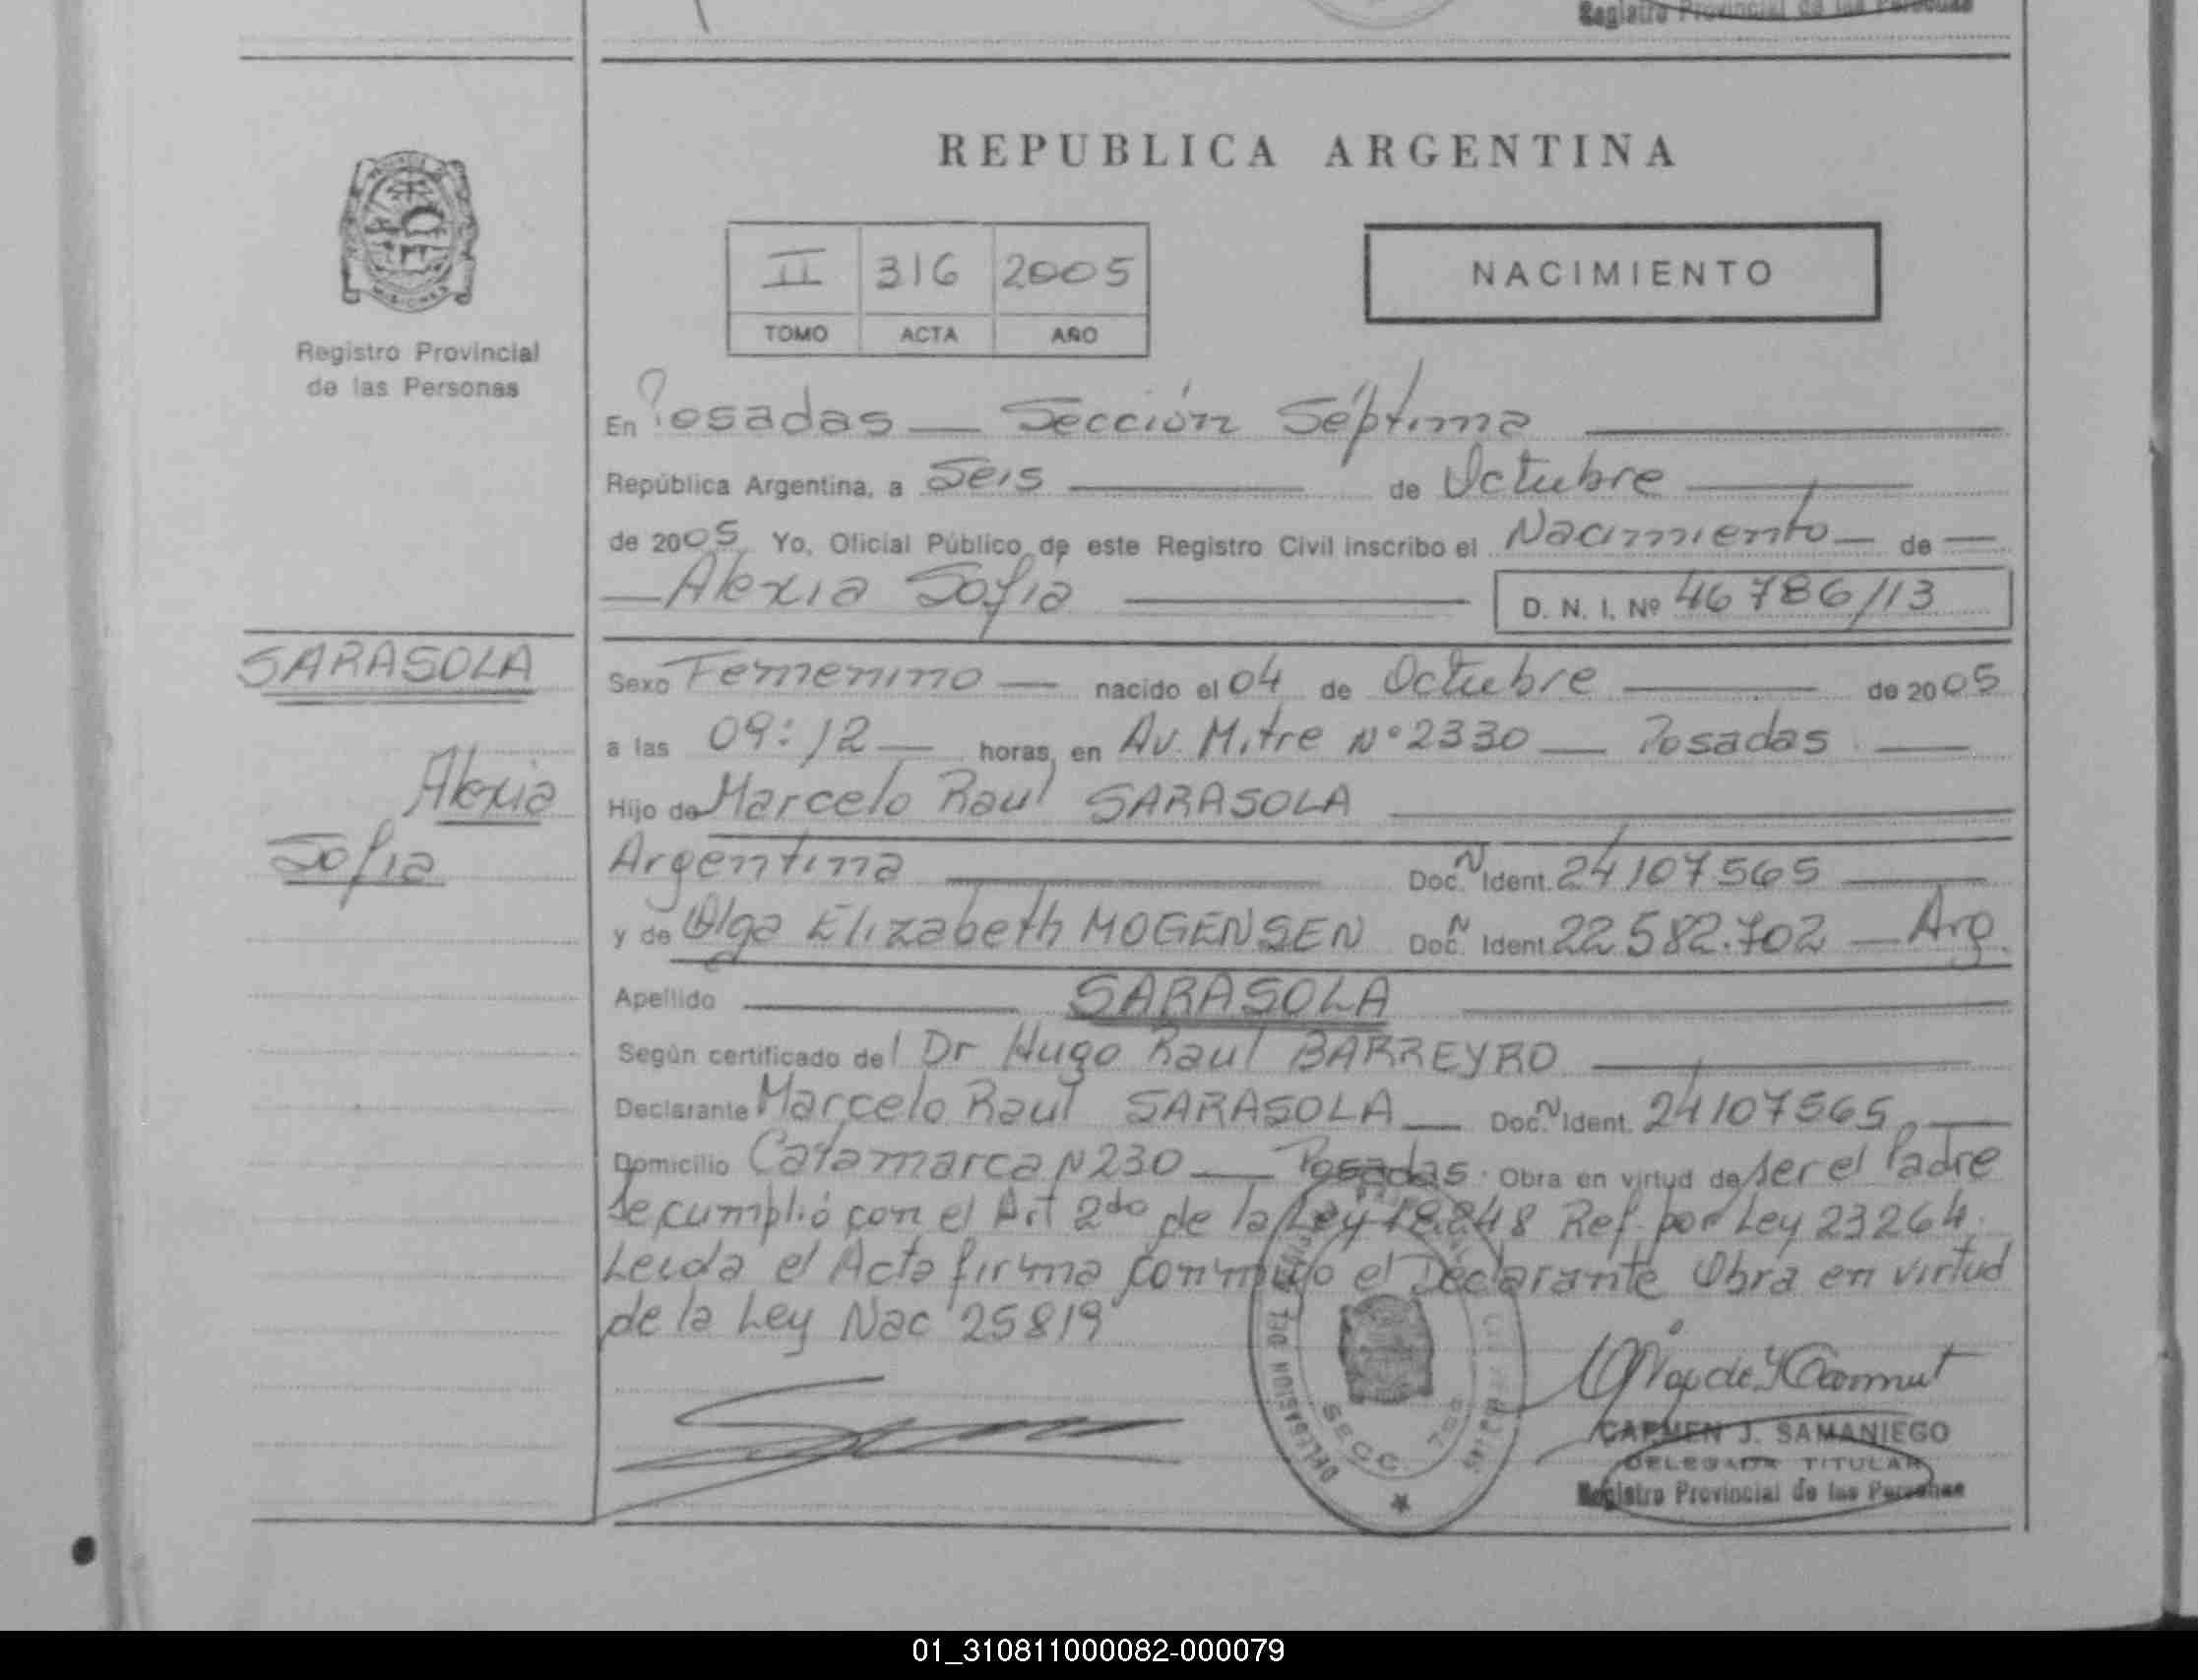 Registro Provincial de las Personas
REPUBLICA ARGENTINA
MISIONES
Registro Provincial
de las Personas
II 316 2005
TOMO ACTA AÑO
NACIMIENTO
En Posadas — Sección Séptima
República Argentina, a Seis de Octubre
de 2005 Yo, Oficial Público de este Registro Civil inscribo el Nacimiento — de —
— Alexia Sofia — D. N. I. Nº 46786113
SARASOLA
Alexia
Sofia
Sexo Femenino — nacido el 04 de Octubre — de 2005
a las 09:12 — horas, en Av. Mitre Nº 2330 — Posadas —
Hijo de Marcelo Raul SARASOLA
Argentina — Doc. N Ident. 24107565 —
y de Olga Elizabeth MOGENSEN Doc. N Ident. 22.582.702 — Arg.
Apellido — SARASOLA —
Según certificado del Dr Hugo Raul BARREYRO —
Declarante Marcelo Raul SARASOLA — Doc. N Ident. 24107565, —
Domicilio Catamarca N 230 — Posadas. Obra en virtud de ser el Padre
Se cumplió con el Art 2do de la Ley 18.248 Ref. por Ley 23264.
Leida el Acta firma conmigo el Declarante Obra en virtud
de la Ley Nac "25819"
SECC. 7ma
CARMEN J. SAMANIEGO
DELEGADA TITULAR
Registro Provincial de las Personas
01_310811000082-000079